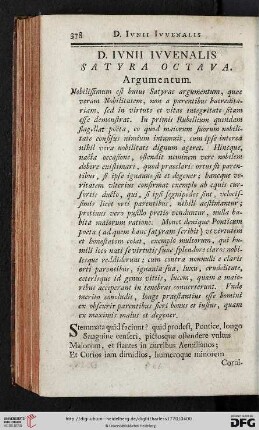 378 D. IVNII IVVENALIS
D. IVNII IVVENALIS
SATYRA OCTAVA.
Argumentum.
Nobilissimum est huius Satyrae argumentum, quae
veram Nobilitatem, non a parentibus haeredita-
riam, sed in virtute et vitae integritate sitam
esse demonstrat. In primis Rubellium quendam
flagellat poëta, eo quod maiorum suorum nobili-
tate confisus nimium intumuit, cum ipse interea
nihil vera nobilitate dignum ageret. Hincque,
nacta occasione, ostendit neminem vere nobilem
debere existimari, quod praeclaris ortus sit paren-
tibus, si ipse ignauus sit et degener; hancque ve-
ritatem
confirmat exemplo ab equis cur-
soribus ducto, qui, si ipsi segnipedes sint,
simis licet orti parentibus, nihili aestimantur;
pretioque vero pusillo venduntur, nulla ha-
bita maiorum ratione. Monet denique Ponticum
poëta (ad quem hanc satyram scribit) vt virtutem
et honestatem colat, exemplo multorum, qui hu-
mili loco nati se virtutis suae splendore claros nobi-
lesque reddiderunt; cum contra nonnulli e claris
orti parentibus, ignauia sua, luxu, crudelitate,
ceterisque id genus vitiis, lucem, quam a maio-
ribus acceperant in tenebras conuerterint. Vnde
merito concludit, longe praestantius esse homini
ex obscuris parentibus fieri bonus et iustus, quam
ex maximis malus et degener.
Stemmata quid faciunt? quid prodest, Pontice, longo
Sanguine censeri, pictosque ostendere vultus
Maiorum, et stantes in curribus Aemilianos;
Et Curios iam dimidios, humeroque minorem
Corui-